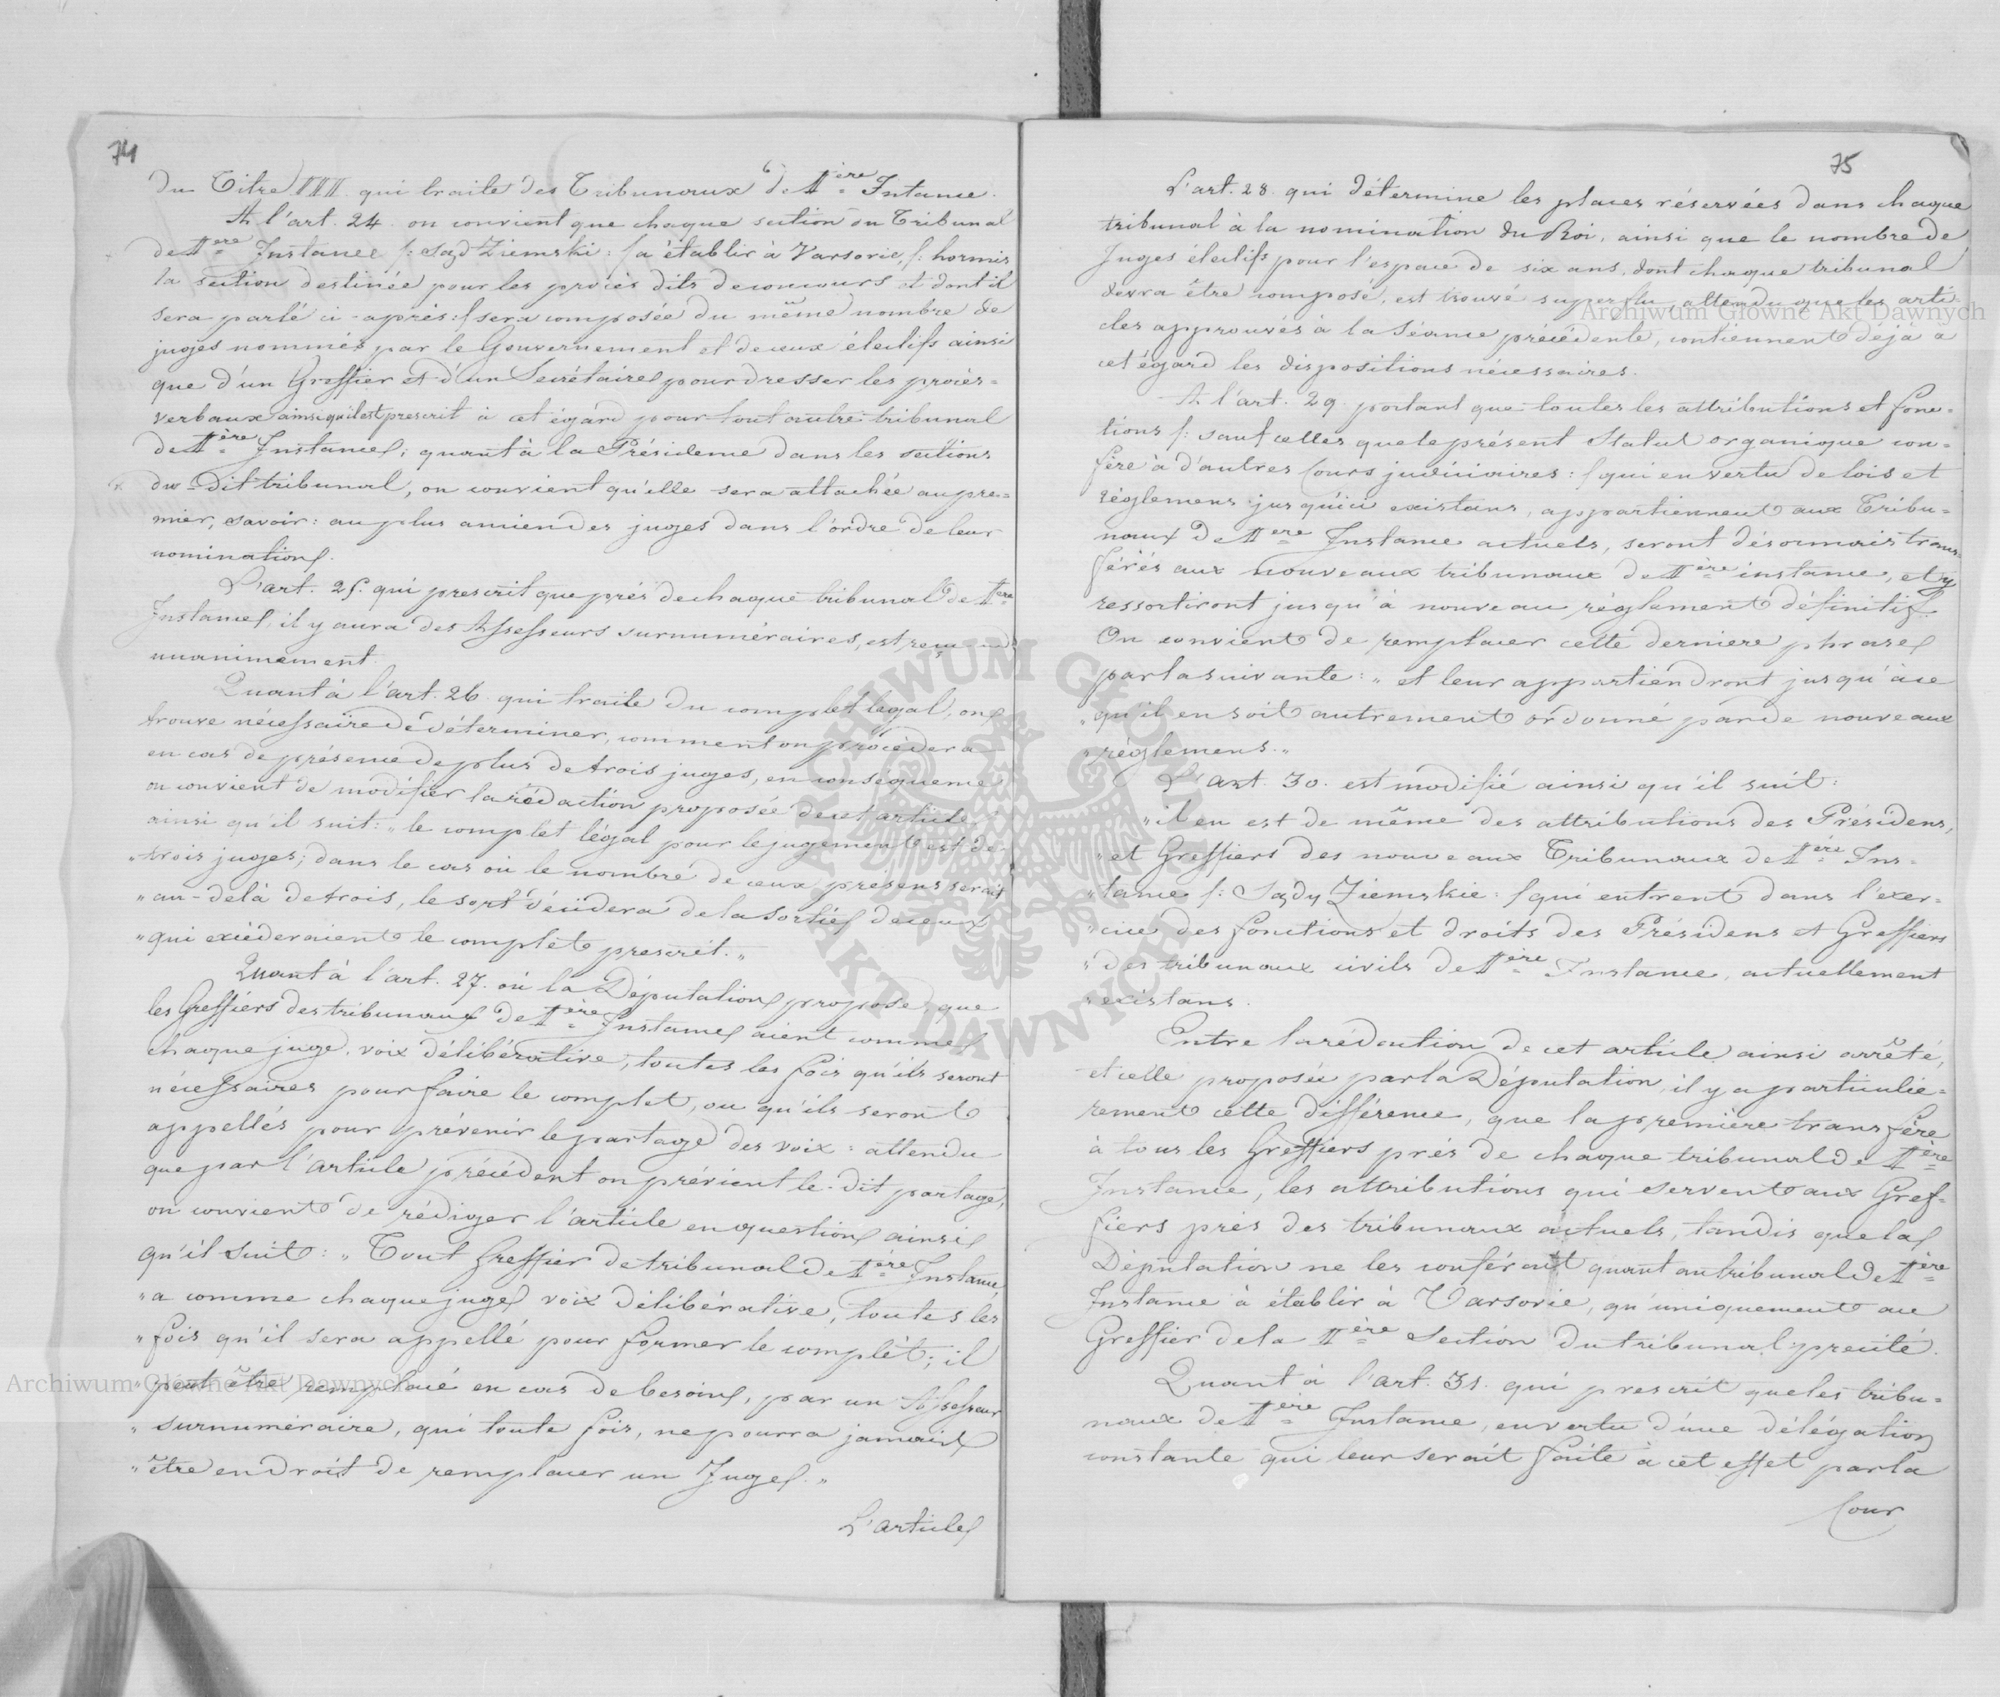 74
du Titre III. qui traite des Tribunaux de Ière Intance.
A l'art. 24. on convient que chaque section du Tribunal
de Iere Instance /: Sąd Ziemski :/ à établir à Varsovie, /: hormis
la section destinée pour les procès dits de concours et dont il
sera parlé ci-après :/ sera composée du même nombre de
juges nommés par le Gouvernement et de ceux électifs ainsi
que d'un Greffier et d'un Secrétaire pour dresser les procès-
verbaux ainsi qu'il est prescrit à cet égard pour tout autre tribunal
de Ière Instance; quant à la Présidence dans les sections
du-dit tribunal, on convient qu'elle sera attachée au pre-
mier, savoir: au plus ancien des juges dans l'ordre de leur
nomination.
L'art. 25. qui prescrit que près de chaque tribunal de Iere
Instance, il y aura des Assesseurs surnuméraires, est reçu
unanimement.
Quant à l'art. 26. qui traite du complet légal, on
trouve nécessaire de déterminer, comment on procédera
en cas de présence de plus de trois juges, en conséquence
on convient de modifier la rédaction proposée de cet article
ainsi qu'il suit: „ le complet légal pour le jugement est de
„ trois juges; dans le cas où le nombre de ceux présens serait
„ au-delà de trois, le sort décidera de la sortie de ceux
„ qui excéderaient le complèt prescrit. „
Quant à l'art. 27. où la Députation propose, que
les Greffiers des tribunaux de Ière Instance aient comme
chaque juge, voix délibérative, toutes les fois qu'ils seront
nécessaires pour faire le complet, ou qu'ils seront
appellés pour prévenir le partage des voix: attendu
que par l'article précédent on prévient le-dit partage,
on convient de rédiger l'article en question ainsi
qu'il suit: „ Tout Greffier de tribunal de Ière Instance,
„ a comme chaque juge voix délibérative, toutes les
„ fois qu'il sera appellé pour former le complèt; il
„ peut être remplacé en cas de besoin, par un Assesseur
„ surnuméraire, qui toute fois, ne pourra jamais
„ être en droit de remplacer un Juge. „
L'article
75
L'art. 28. qui détermine les places réservées dans chaque
tribunal à la nomination du Roi, ainsi que le nombre de
Juges électifs pour l'espace de six ans, dont chaque tribunal
devra être composé, est trouvé superflu, attendu que les arti-
cles approuvés à la Séance précédente, contiennent déjà à
cet égard les dispositions nécessaires.
A l'art. 29. portant que toutes les attributions et fonc-
tions /: sauf celles que le présent Statut organique con-
fère à d'autres Cours judiciaires :/ qui en vertu de lois et
réglemens jusqu'ici existans, appartiennent aux Tribu-
naux de Iere Instance actuels, seront désormais trans-
férés aux nouveaux tribunaux de Ière instance, et y
ressortiront jusqu'à nouveau réglement définitif.
On convient de remplacer cette derniere phrase
par la suivante: „ et leur appartiendront jusqu'à ce
„ qu'il en soit autrement ordonné par de nouveaux
„ réglemens. „
L'art. 30. est modifié ainsi qu'il suit:
„ il en est de même des attributions des Présidens,
„ et Greffiers des nouveaux Tribunaux de Ière Ins-
„ tance /: Sądy Ziemskie :/ qui entrent dans l'exer-
„ cice des fonctions et droits des Présidens et Greffiers
„ des tribunaux civils de Ière Instance, actuellement
„ existans.
Entre la rédaction de cet article ainsi arrêté,
et celle proposée par la Députation, il y a particulie-
rement cette différence, que la première transfère
à tous les Greffiers près de chaque tribunal de Ière
Instance, les attributions qui servent aux Gref-
fiers près des tribunaux actuels, tandis que la
Députation ne les conférait quant au tribunal de Ière
Instance à établir à Varsovie, qu'uniquement au
Greffier de la Ière Section du tribunal précité.
Quant à l'art. 31. qui prescrit que les tribu-
naux de Ière Instance, en vertu d'une délégation
constante qui leur serait faite à cet effet par la
Cour
Archiwum Główne Akt Dawnych
Archiwum Główne Akt Dawnych
ARCHIWUM GŁÓWNE AKT DAWNYCH